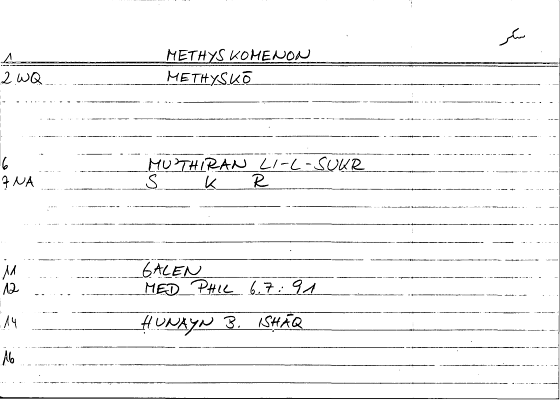 سكر
1 METHYSKOMENON
2 WQ METHYSKŌ
6 MU'THIRAN LI-L-SUKR
7 NA S K R
11 GALEN
12 MED PHIL 6.7: 91
14 HUNAYN B. ISHĀQ
16